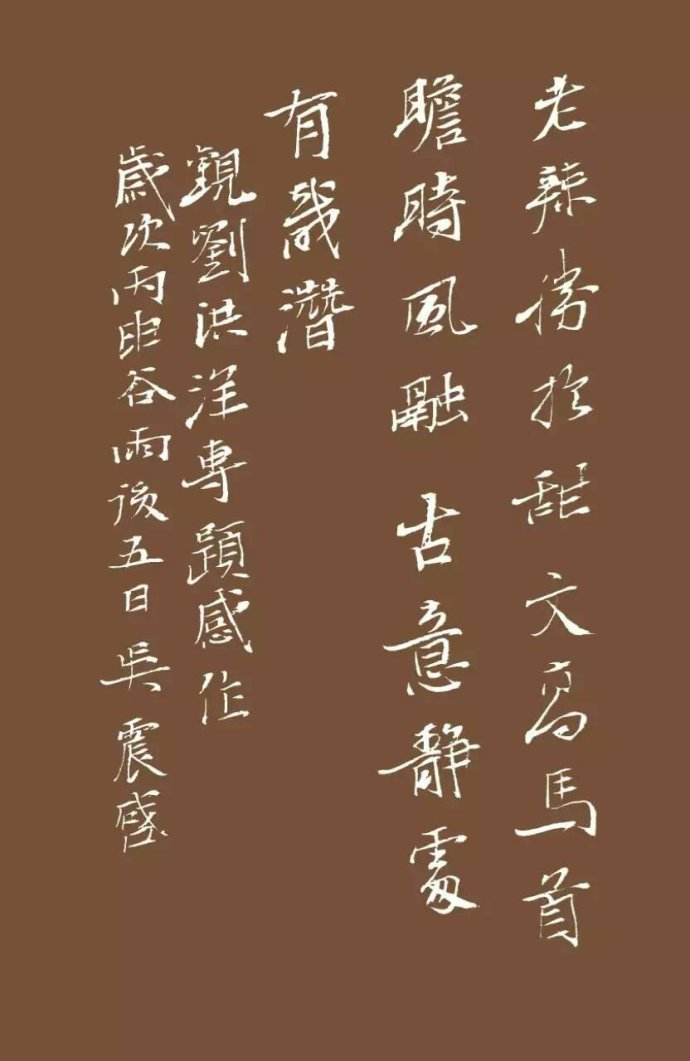 老辣勝於甜文高馬首
瞻時風融古意靜處
有幾潛
觀劉洪洋專題感作
歲次丙申谷雨後五日吳震啟